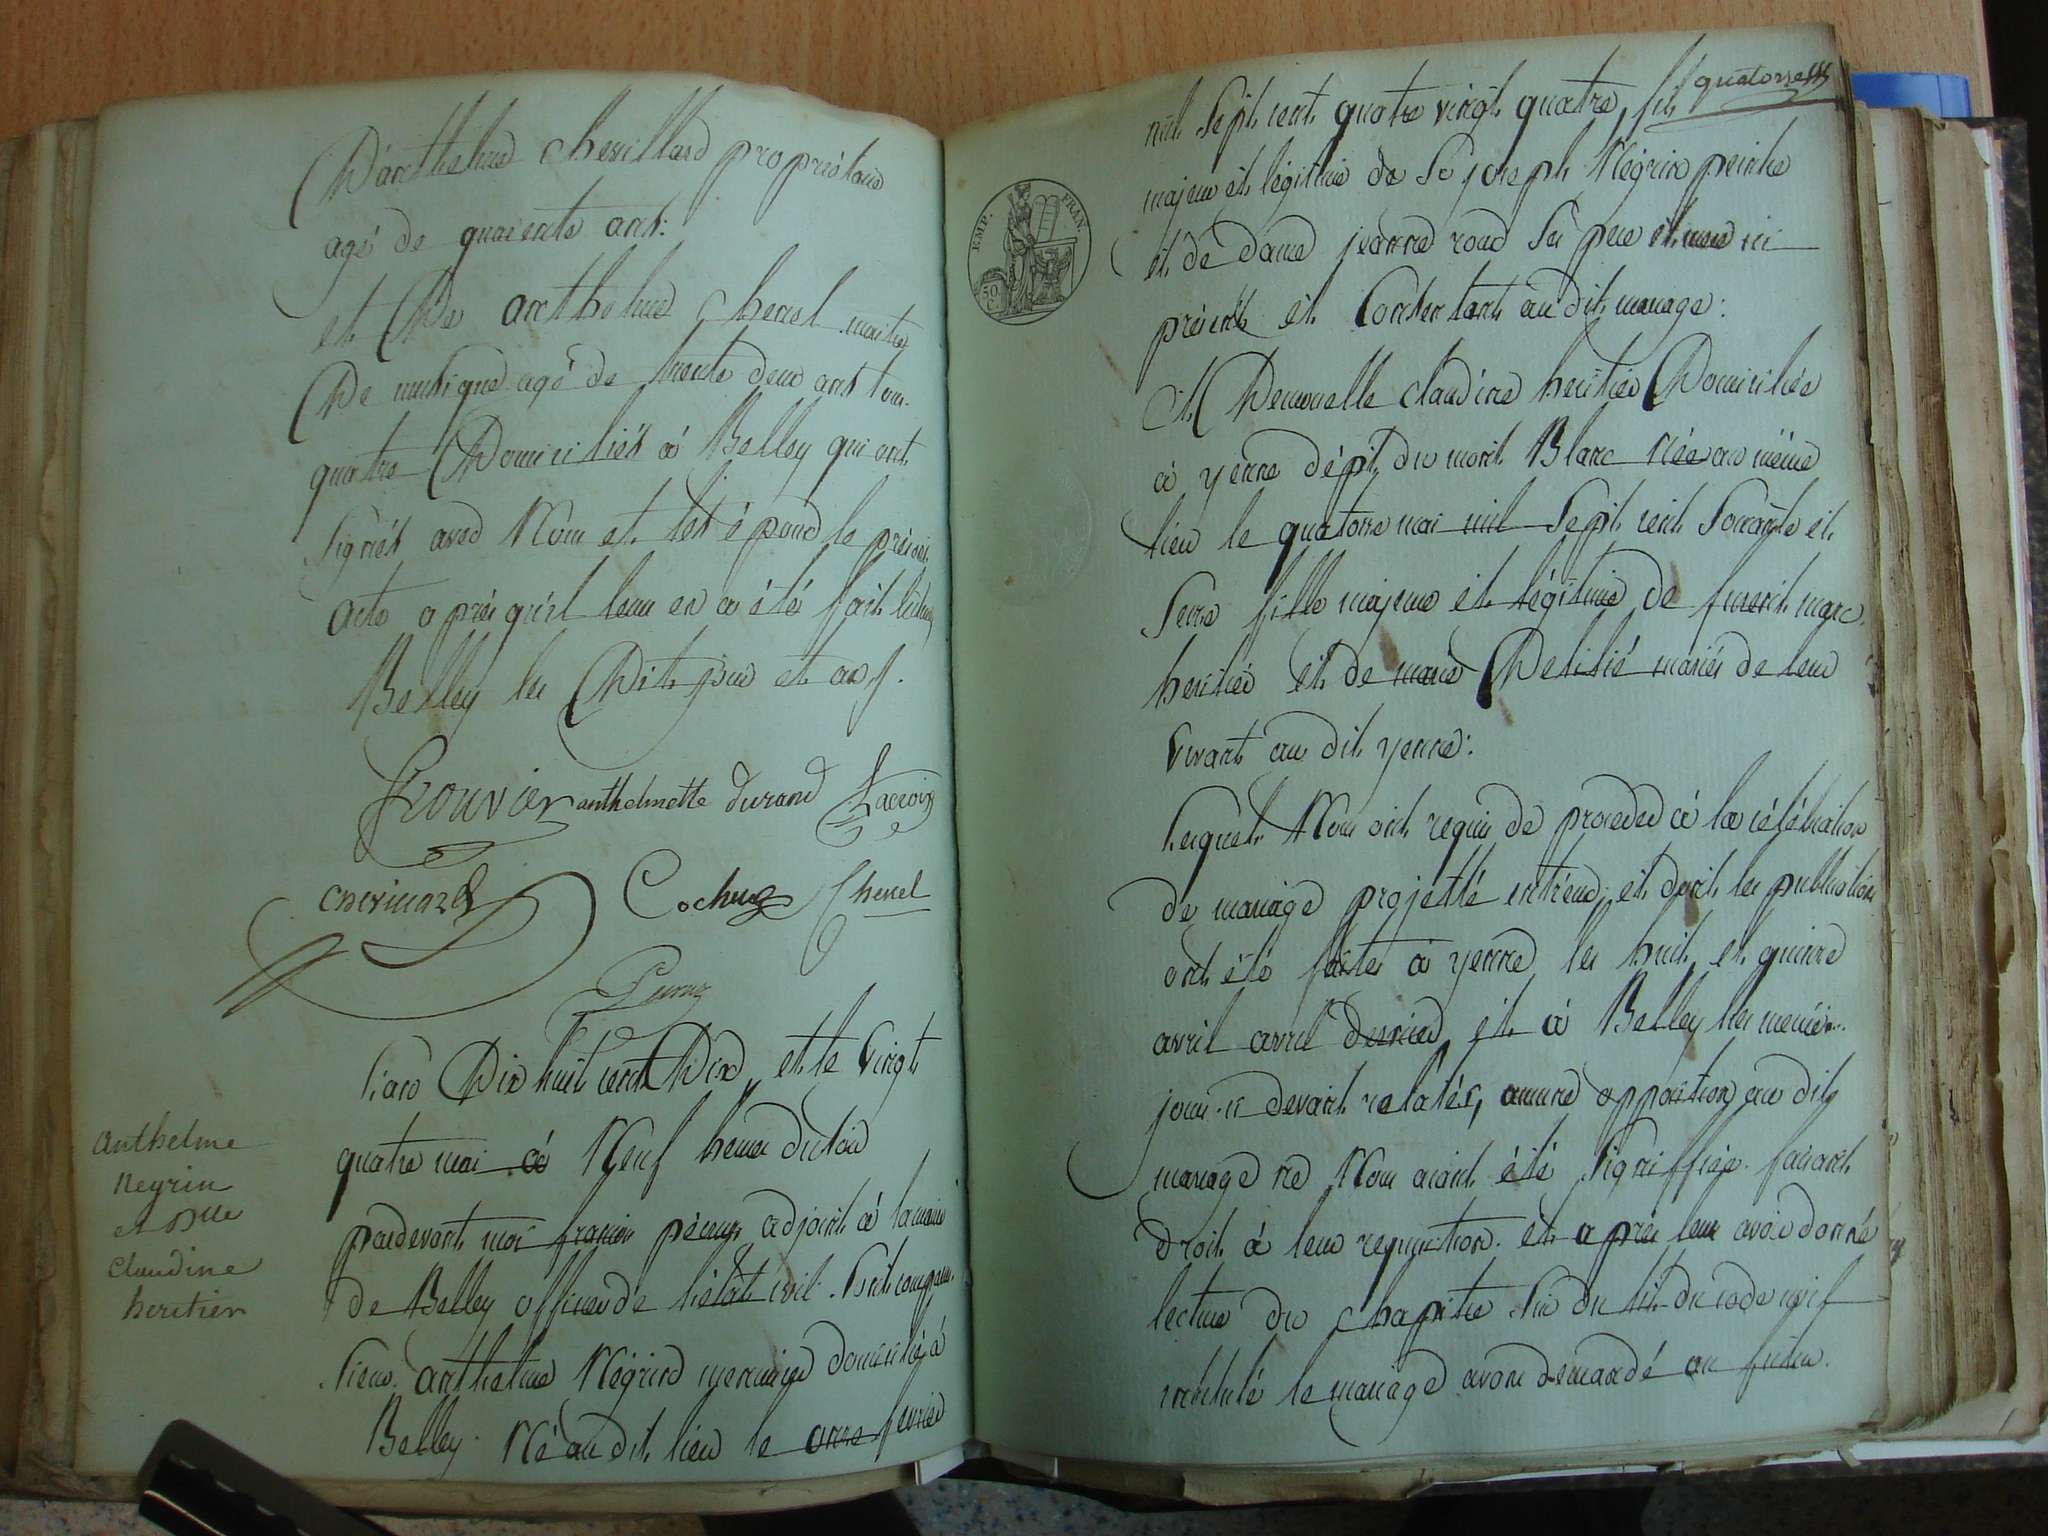 D'anthelme Chevillard propriétaire
agé de quarente ans:
et De anthelme Chenel maitre
De musique agé de trente deux ans tous
quatre Domiciliés à Belley qui ont
signés avec Nous et les époux le présent
acte après qu'il leur en a été fait lecture
Belley les Dits jour et an
Rouvier anthelmette durand Lacroix
Cochug Chenel
L'an Dix huit cent Dix et le Vingt
quatre mai à Neuf heures du soir
pardevant moi adjoint à la mairie
de Belley officier de l'état civil. Sont comparus
Sieur anthelme Négrin menuisier domicilié à
Belley. Né au dit lieu le onze fevrier
anthelme
negrin
et Dlle
Claudine
heritier
quatorze
mil sept cent quatre vingt quatre, fils
majeur et légitime de Sr joseph Négrin peintre
et de dame jeanne roux ses pere et mere ici
présents et Consentants au dit mariage:
EMP. FRAN.
50 C.
Et Demoiselle claudine heritier Domiciliée
à yenne dépt. du mont Blanc Née au même
lieu le quatorze mai mil Sept cent Soixante et
Seize fille majeure et légitime de furent marc
heritier et de marie mariés de leur
vivant au dit yenne:
Lesquels Nous ont requis de proceder à la célébration
de mariage projetté entr'eux, et dont les publications
ont été faites à yenne les huit et quinze
avril avril dernier et à Belley les memes
jours ci devant relatés, aucune opposition au dit
mariage ne Nous aiant été Signiffiée. faisant
droit à leur requisition. et après leur avoir donné
lecture du chapitre Six du tit. du code civil
intitulé le mariage avons demandé au futur